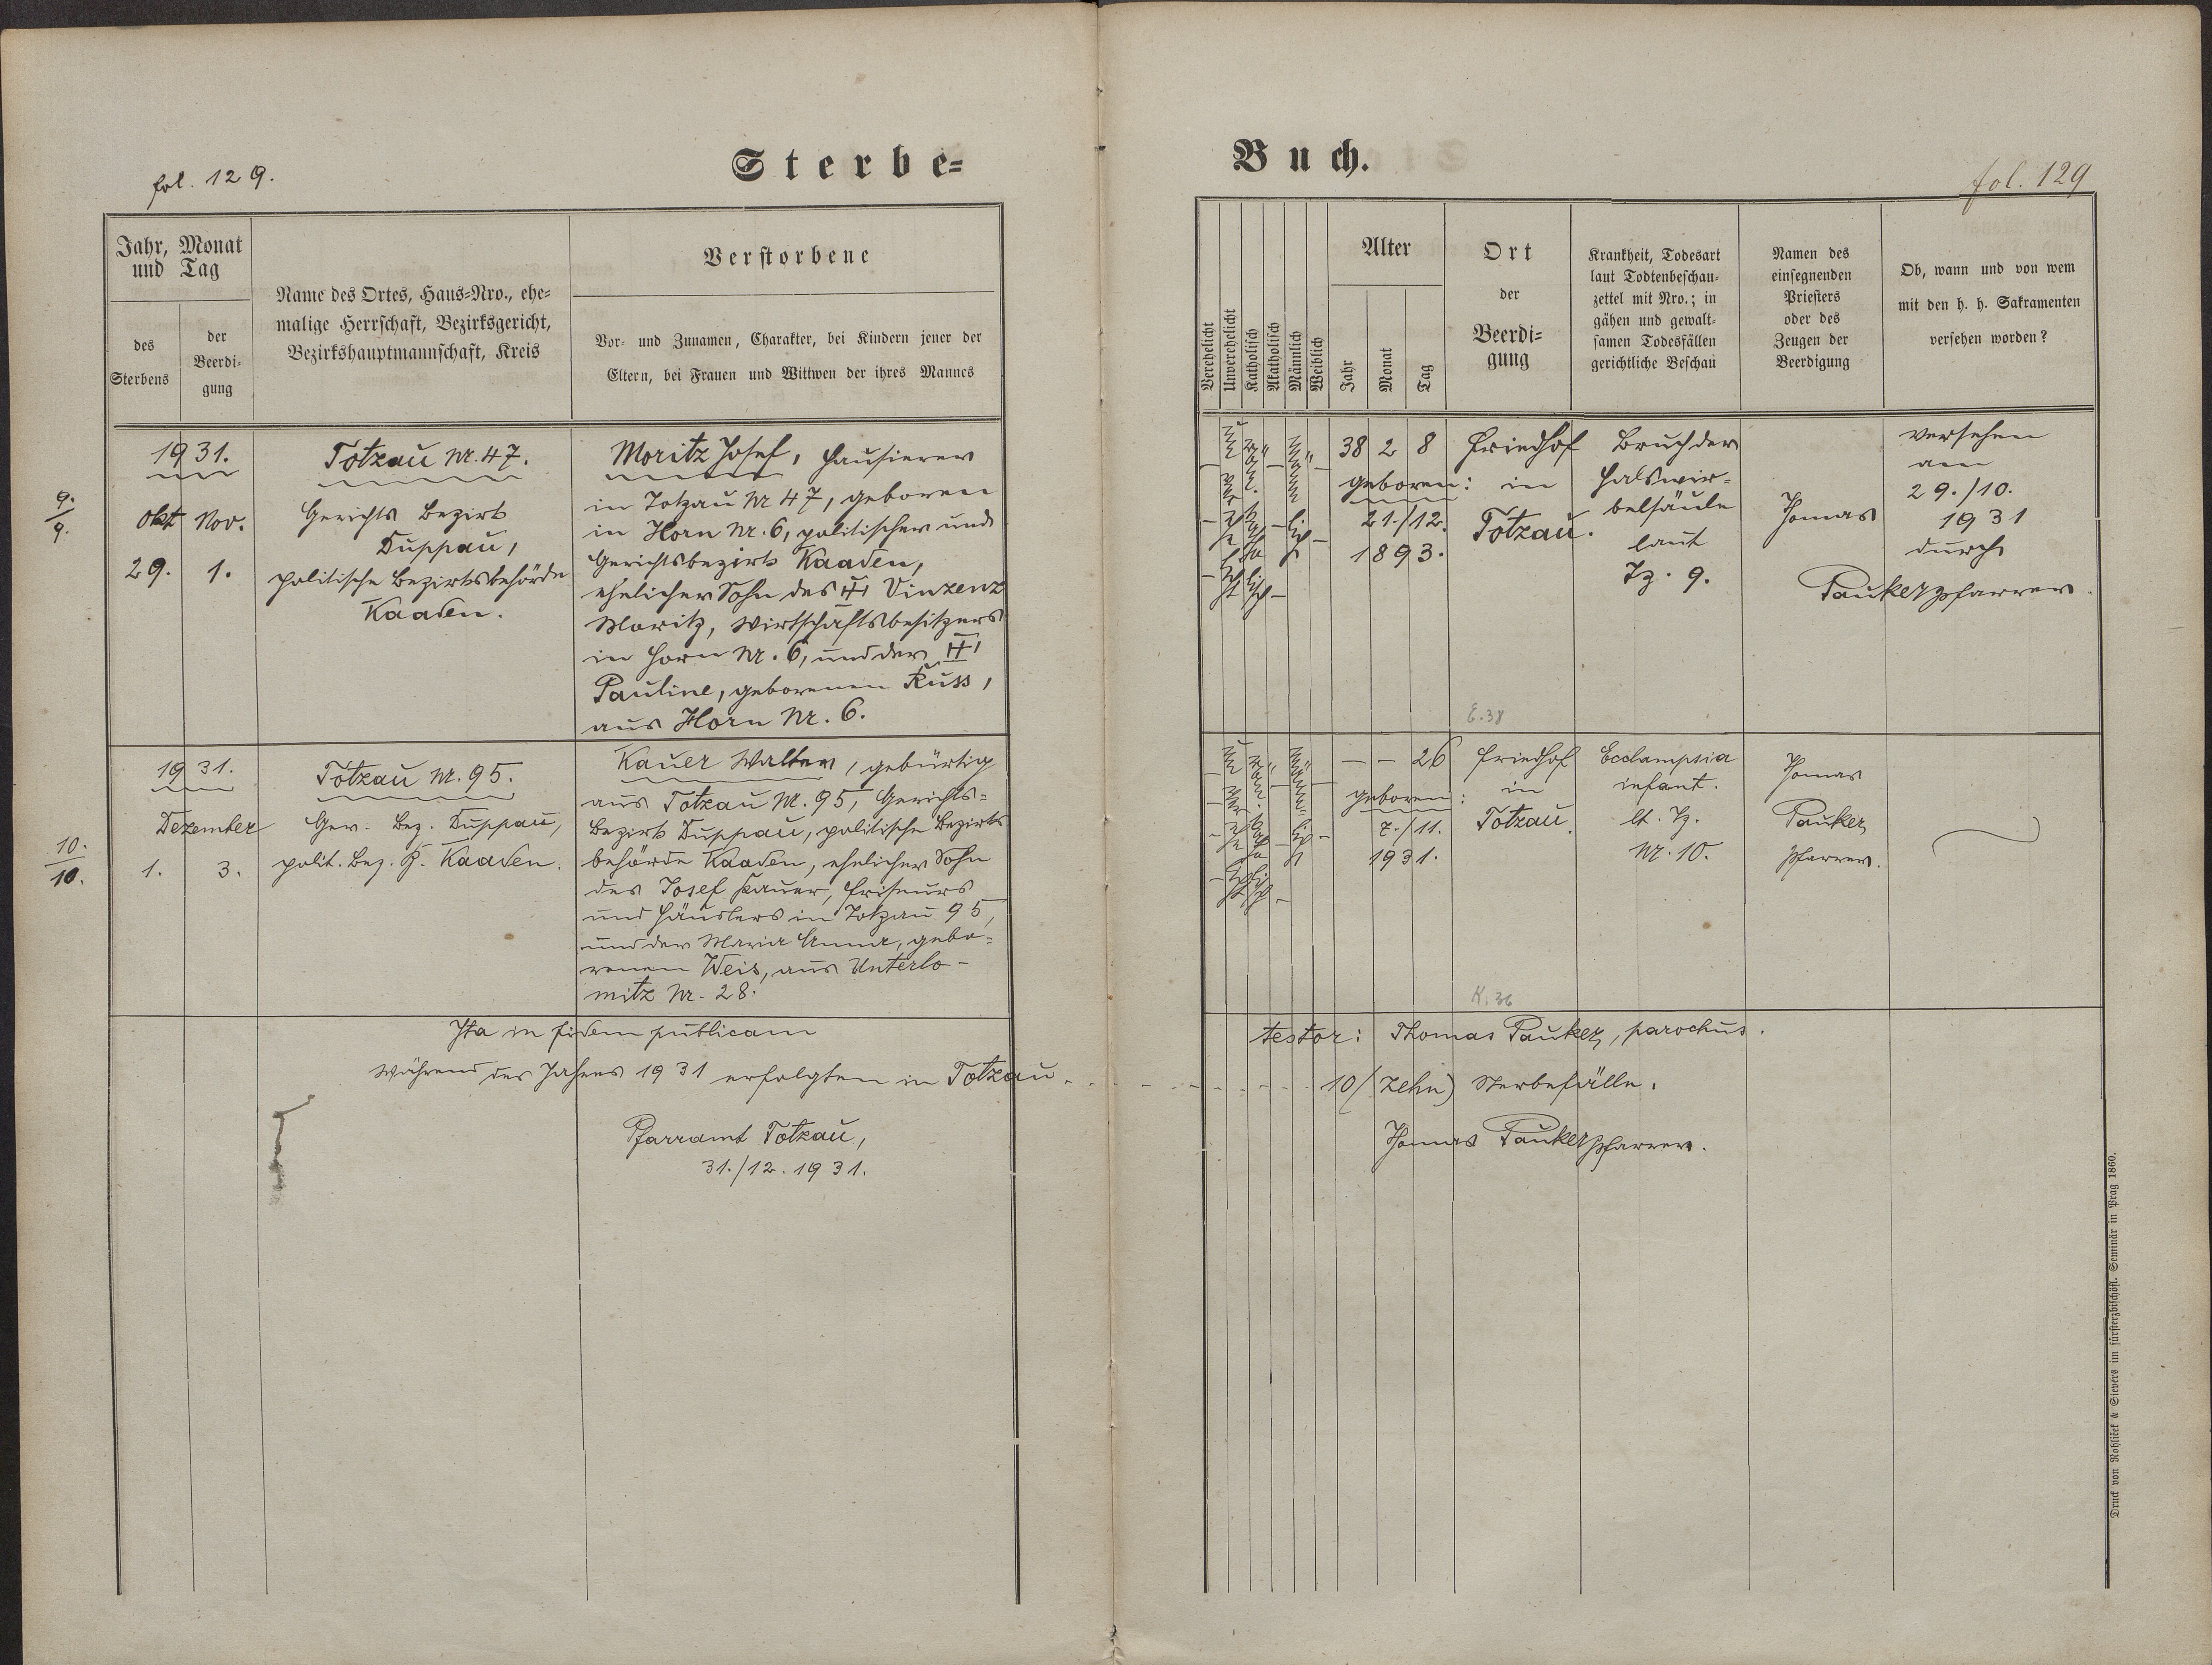 fol. 129.
Sterbe=
Buch.
fol. 129
Jahr, Monat
und Tag
des
Sterbens
der
Beerdi-
gung
Name des Ortes, Haus=Nro., ehe=
malige Herrschaft, Bezirksgericht,
Bezirkshauptmannschaft, Kreis
Verstorbene
Vor= und Zunamen, Charakter, bei Kindern jener der
Eltern, bei Frauen und Wittwen der ihres Mannes
Verehelicht
Unverehelicht
Katholisch
Akatholisch
Männlich
Weiblich
Alter
Jahr
Monat
Tag
Ort
der
Beerdi=
gung
Krankheit, Todesart
laut Todtenbeschau=
zettel mit Nro.; in
gähen und gewalt=
samen Todesfällen
gerichtliche Beschau
Namen des
einsegnenden
Priesters
oder des
Zeugen der
Beerdigung
Ob, wann und von wem
mit den h. h. Sakramenten
versehen worden?
9.
9.
1931.
Okt Nov.
29. 1.
Totzau Nr. 47.
Gerichts Bezirk
Duppau,
politische Bezirksbehörde
Kaaden.
Moritz Josef, Hausierer
in Totzau Nr 47, geboren
in Horn Nr. 6, politischer und
Gerichtsbezirk Kaaden,
ehelicher Sohn des ✝ Vinzenz
Moritz, Wirtschaftsbesitzers
in Horn Nr. 6, und der ✝
Pauline, geborenen Russ,
aus Horn Nr. 6.
Unverehelicht
röm. katholisch
Männlich
38 2 8
geboren:
21./12.
1893.
Friedhof
in
Totzau.
Bruch der
Halswir-
belsäule
laut
Tz. 9.
Thomas
Pauker Pfarrer.
versehen
am
29./10.
1931
durch
E. 38
10.
10.
1931.
Dezember
1. 3.
Totzau Nr. 95.
Ger. Bez. Duppau,
polit. Bez. B. Kaaden.
Kauer Walter, gebürtig
aus Totzau Nr. 95, Gerichts=
Bezirk Duppau, politische Bezirks
behörde Kaaden, ehelicher Sohn
des Josef Kauer, Friseurs
und Häuslers in Totzau 95,
und der Maria Anna, gebo=
renen Weis, aus Unterlo-
mitz Nr. 28.
Unverehelicht
röm. katholisch
männlich
- - 26
geboren:
7./11.
1931.
Friedhof
in
Totzau.
Ecclampsia
infant.
lt. Tz.
Nr. 10.
Thomas
Pauker
Pfarrer.
K. 36
Ita in fidem publicam testor: Thomas Pauker, parochus.
Während des Jahres 1931 erfolgten in Totzau 10 (zehn) Sterbefälle.
Pfarramt Totzau,
31./12. 1931.
Thomas Pauker Pfarrer.
Druck von Rohliček & Sievers im fürsterzbischöfl. Seminär in Prag 1860.